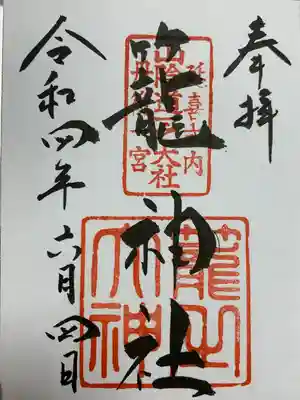 奉拝
延喜式内
山陰道一大社
丹後一宮
籠神社
籠之
大神
令和四年六月四日